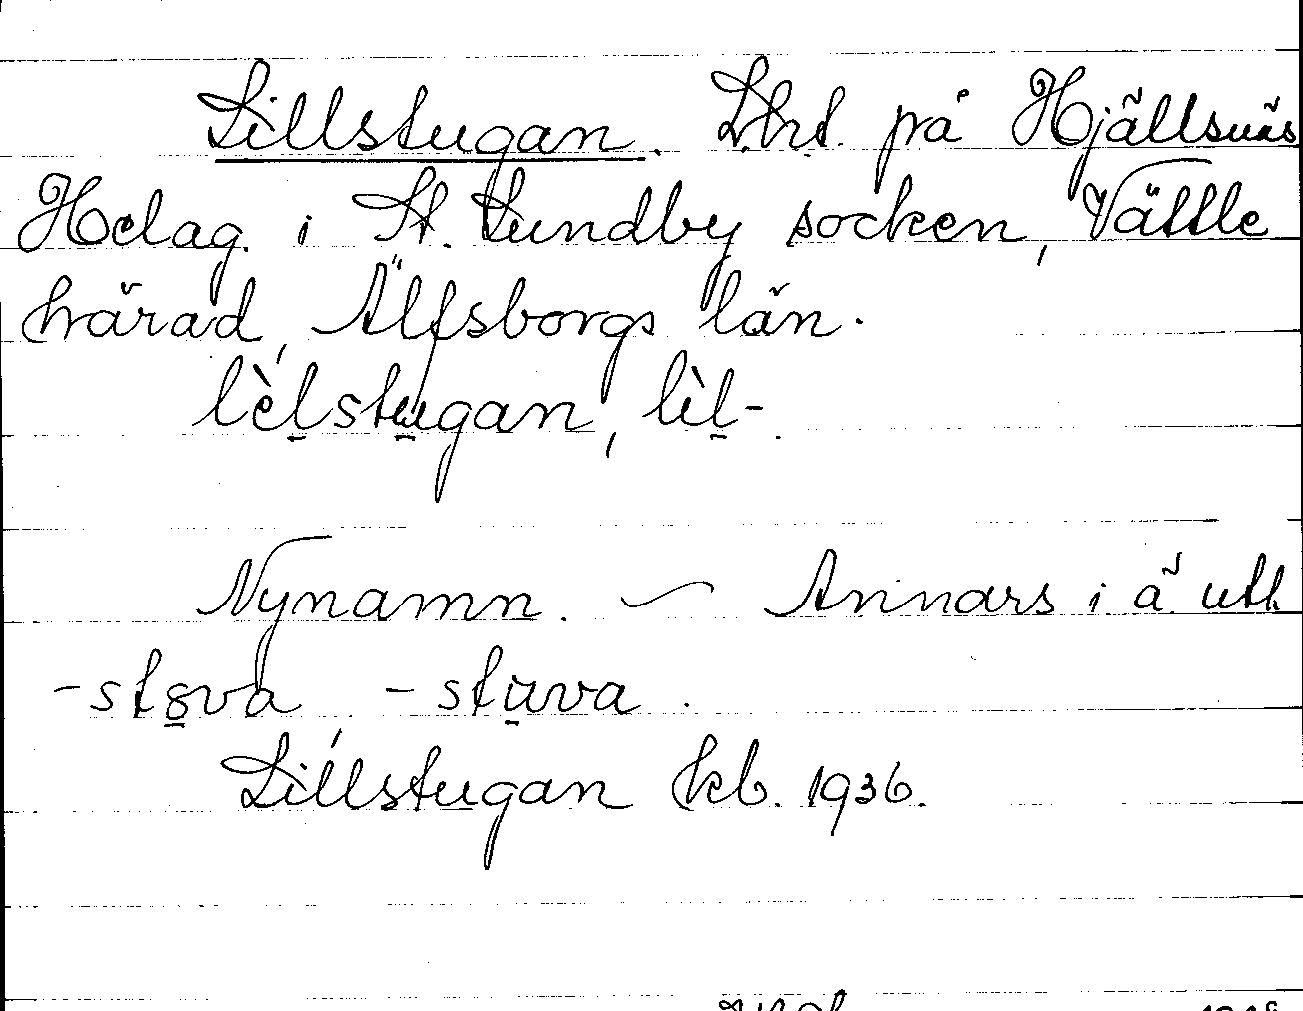 Lillstugan. Lht. på Hjällsnäs
Helag. i St. Lundby socken, Vättle
härad, Älfsborgs län.
lèl̲stu̲gan, lìl̲-.
Nynamn. ~ Annars i ä. utt.
-sto̲va, -stu̲va.
Lillstugan kb. 1936.